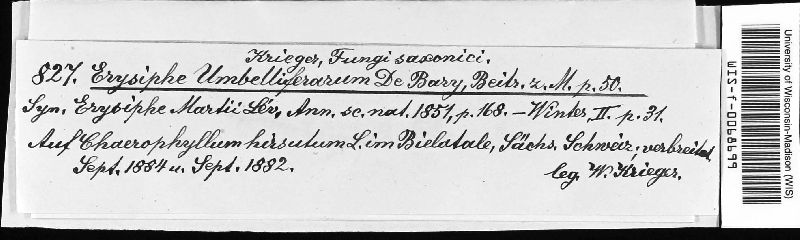 Krieger, Fungi saxonici.
827. Erysiphe Umbelliferarum De Bary, Beitr. z. M. p. 50.
Syn. Erysiphe Martii Lév, Ann. sc. nat. 1851, p. 168. – Winter, II. p. 31.
Auf Chaerophyllum hirsutum L. im Bielatale, Sächs. Schweiz, verbreitet
Sept. 1884 u. Sept. 1882.
leg. W. Krieger.
University of Wisconsin-Madison (WIS)
WIS-f-0068699